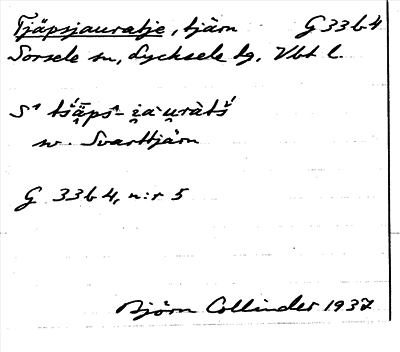 Tjäpsjauratje, tjärn G 33 b 4
Sorsele sn, Lycksele tg. Vbt l.
w. Svarttjärn
G 33 b 4, n:r 5
Björn Collinder 1937